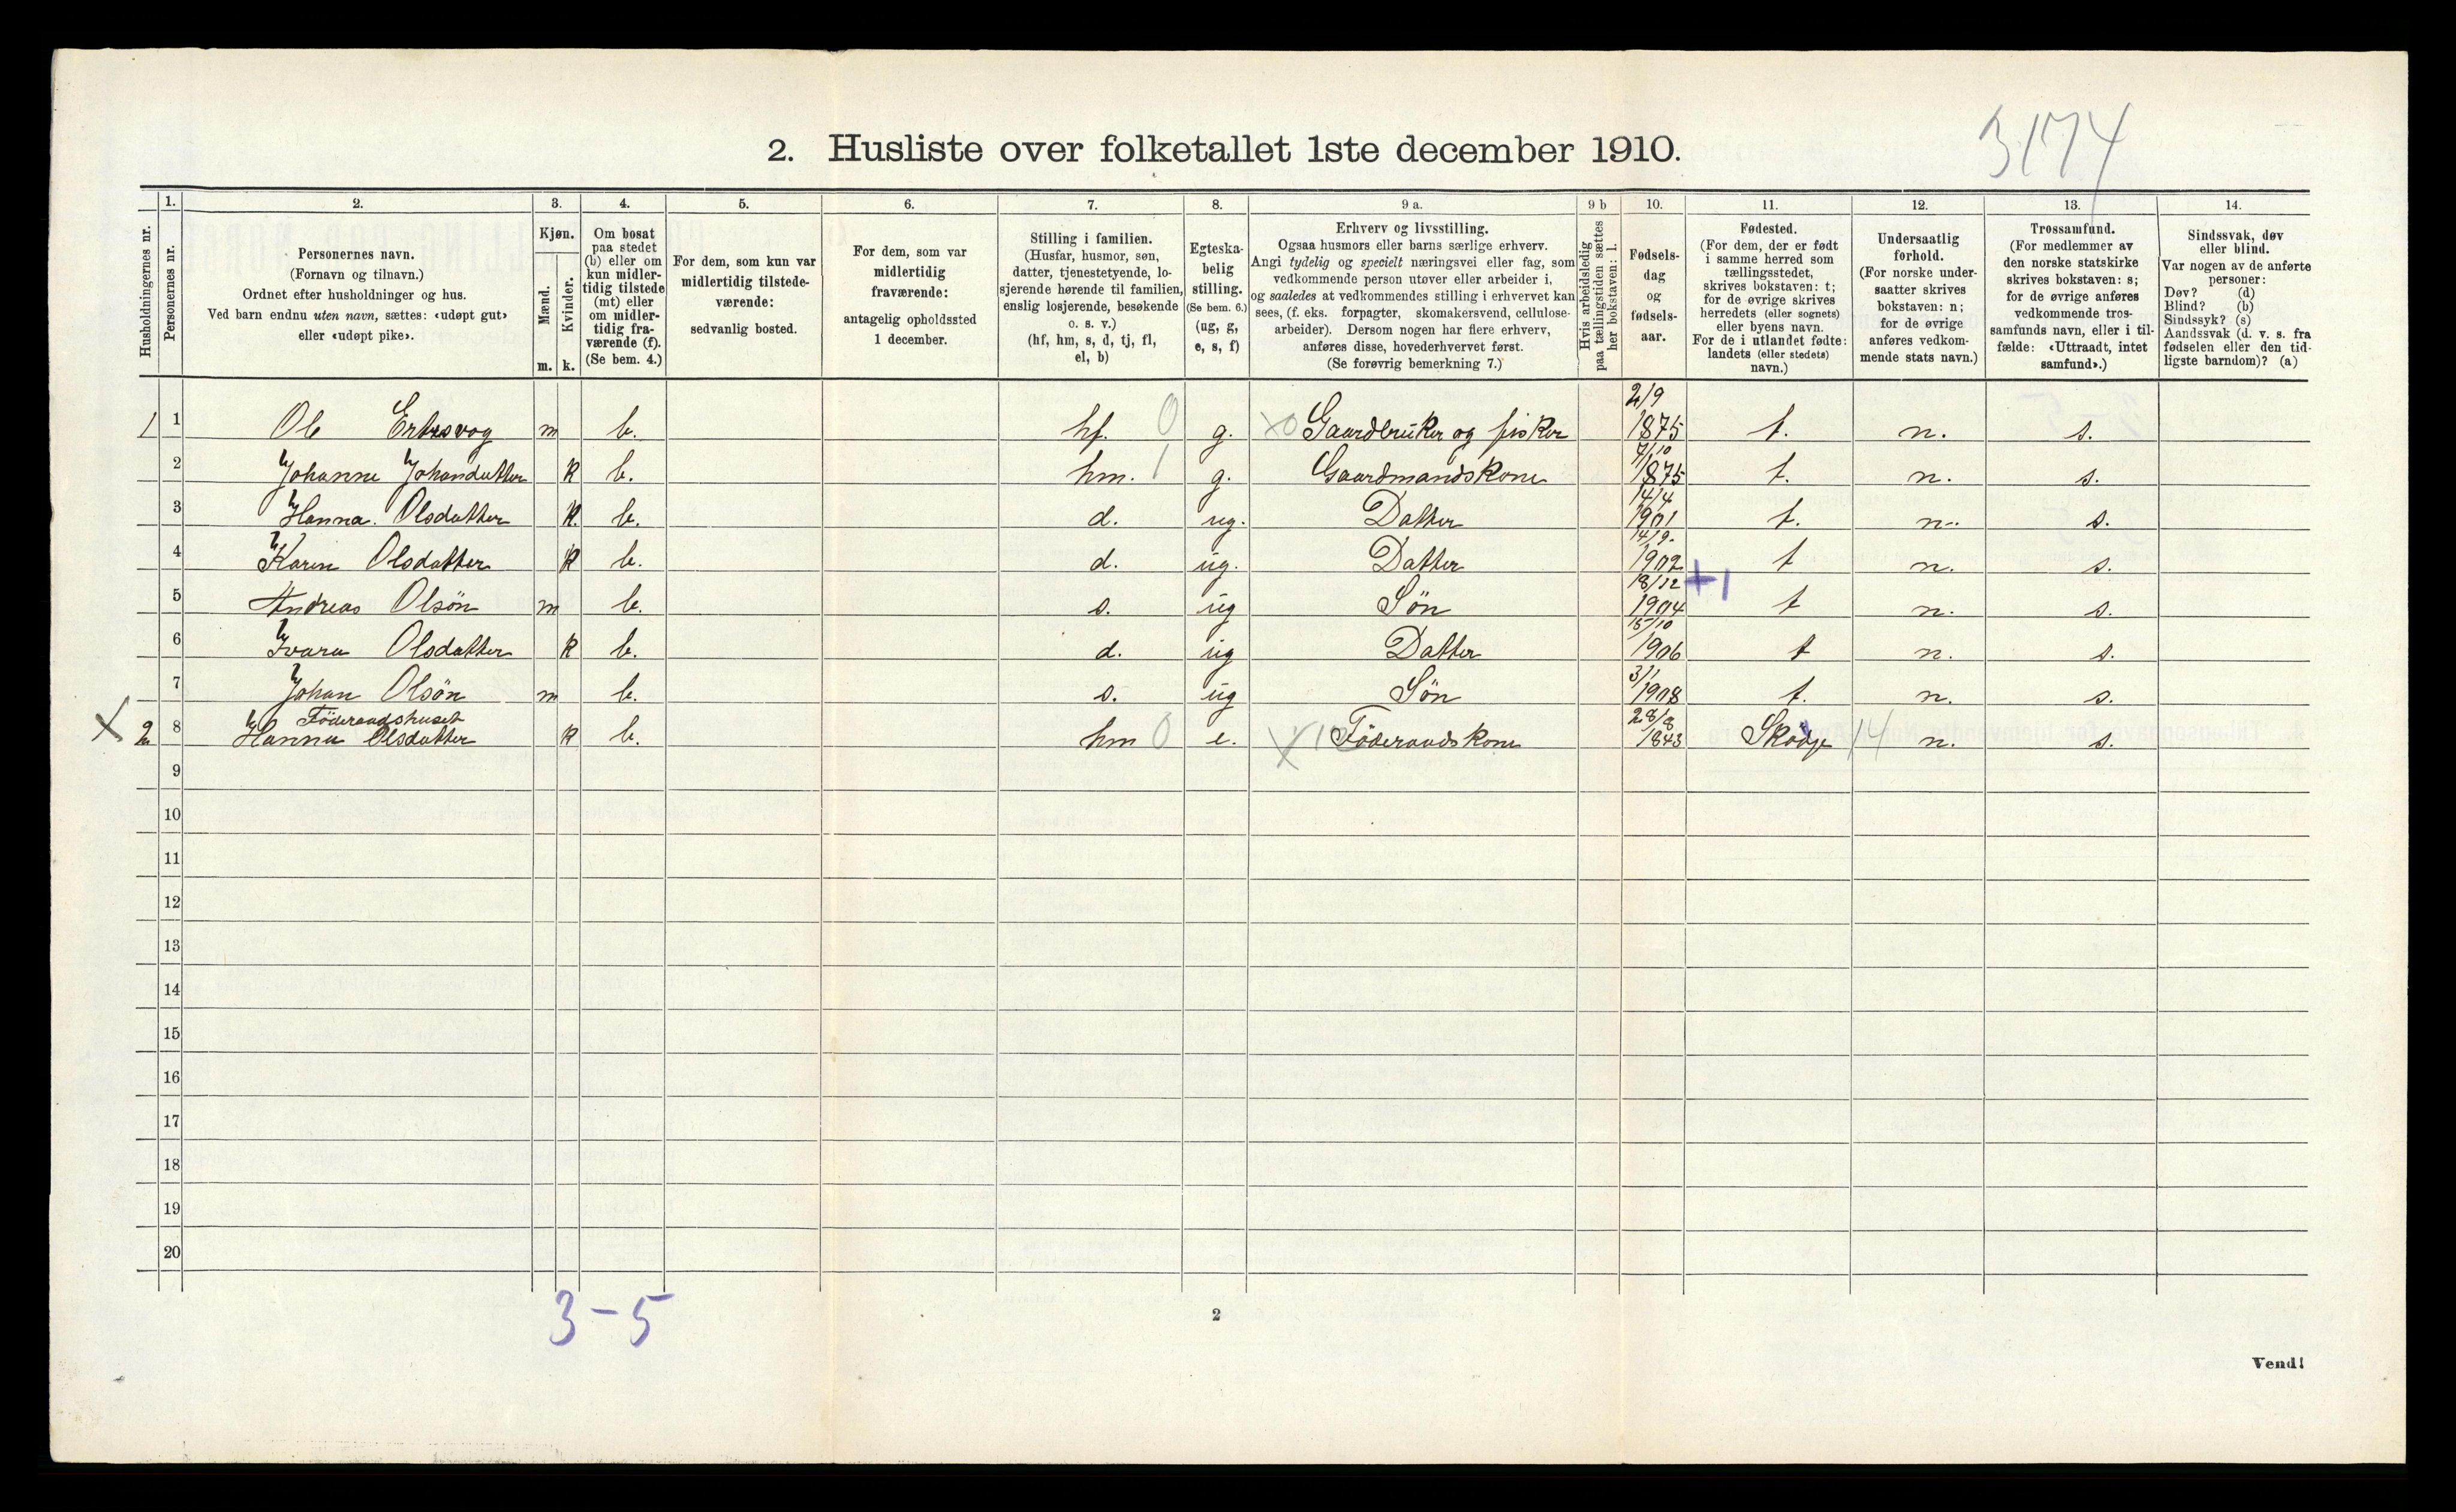 3174
2. Husliste over folketallet 1ste december 1910.
Husholdningernes nr.
1.
Personernes nr.
2.
Personernes navn.
(Fornavn og tilnavn.)
Ordnet efter husholdninger og hus.
Ved barn endnu uten navn, sættes: «udøpt gut»
eller «udøpt pike».
3.
Kjøn.
Mænd.
Kvinder.
m. k.
4.
Om bosat
paa stedet
(b) eller om
kun midler-
tidig tilstede
(mt) eller
om midler-
tidig fra-
værende (f).
(Se bem. 4.)
5.
For dem, som kun var
midlertidig tilstede-
værende:
sedvanlig bosted.
6.
For dem, som var
midlertidig
fraværende:
antagelig opholdssted
1 december.
7.
Stilling i familien.
(Husfar, husmor, søn,
datter, tjenestetyende, lo-
sjerende hørende til familien,
enslig losjerende, besøkende
o. s. v.)
(hf, hm, s, d, tj, fl,
el, b)
8.
Egteska-
belig
stilling.
(Se bem. 6.)
(ug, g,
e, s, f)
9 a.
Erhverv og livsstilling.
Ogsaa husmors eller barns særlige erhverv.
Angi tydelig og specielt næringsvei eller fag, som
vedkommende person utøver eller arbeider i,
og saaledes at vedkommendes stilling i erhvervet kan
sees, (f. eks. forpagter, skomakersvend, cellulose-
arbeider). Dersom nogen har flere erhverv,
anføres disse, hovederhvervet først.
(Se forøvrig bemerkning 7.)
9 b
Hvis arbeidsledig
paa tællingstiden sættes
her bokstaven: l.
10.
Fødsels-
dag
og
fødsels-
aar.
11.
Fødested.
(For dem, der er født
i samme herred som
tællingsstedet,
skrives bokstaven: t;
for de øvrige skrives
herredets (eller sognets)
eller byens navn.
For de i utlandet fødte:
landets (eller stedets)
navn.)
12.
Undersaatlig
forhold.
(For norske under-
saatter skrives
bokstaven: n;
for de øvrige
anføres vedkom-
mende stats navn.)
13.
Trossamfund.
(For medlemmer av
den norske statskirke
skrives bokstaven: s;
for de øvrige anføres
vedkommende tros-
samfunds navn, eller i til-
fælde: «Uttraadt, intet
samfund».)
14.
Sindssvak, døv
eller blind.
Var nogen av de anførte
personer:
Døv? (d)
Blind? (b)
Sindssyk? (s)
Aandssvak (d. v. s. fra
fødselen eller den tid-
ligste barndom)? (a)
1 1 Ole m b. hf. 0 g. x0 Gaardbruker og fisker 2/9 1875 t. n. s.
2 Johanne Johandatter k b. hm. 1 g. Gaardmandskone 7/10 1875 t. n. s.
3 Hanna Olsdatter k. b. d. ug. Datter 14/4 1901 t. n. s.
4 Karen Olsdatter k b. d. ug. Datter 14/9. 1902 t n. s.
5 Andreas Olsön m b. s. ug Søn 18/12 1904 +1 t n. s.
6 Ivara Olsdatter k b. d. ug Datter 15/10 1906 t n. s.
7 Johan Olsön m b. s. ug Søn 3/1 1908 t. n. s.
Föderaadshuset
X 2 8 Hanna Olsdatter k b. hm 0 e. Föderaadskone 28/8 1843 Skodje 14 n. s.
9
10
11
12
13
14
15
16
17
18
19
20
3-5
2
Vend!